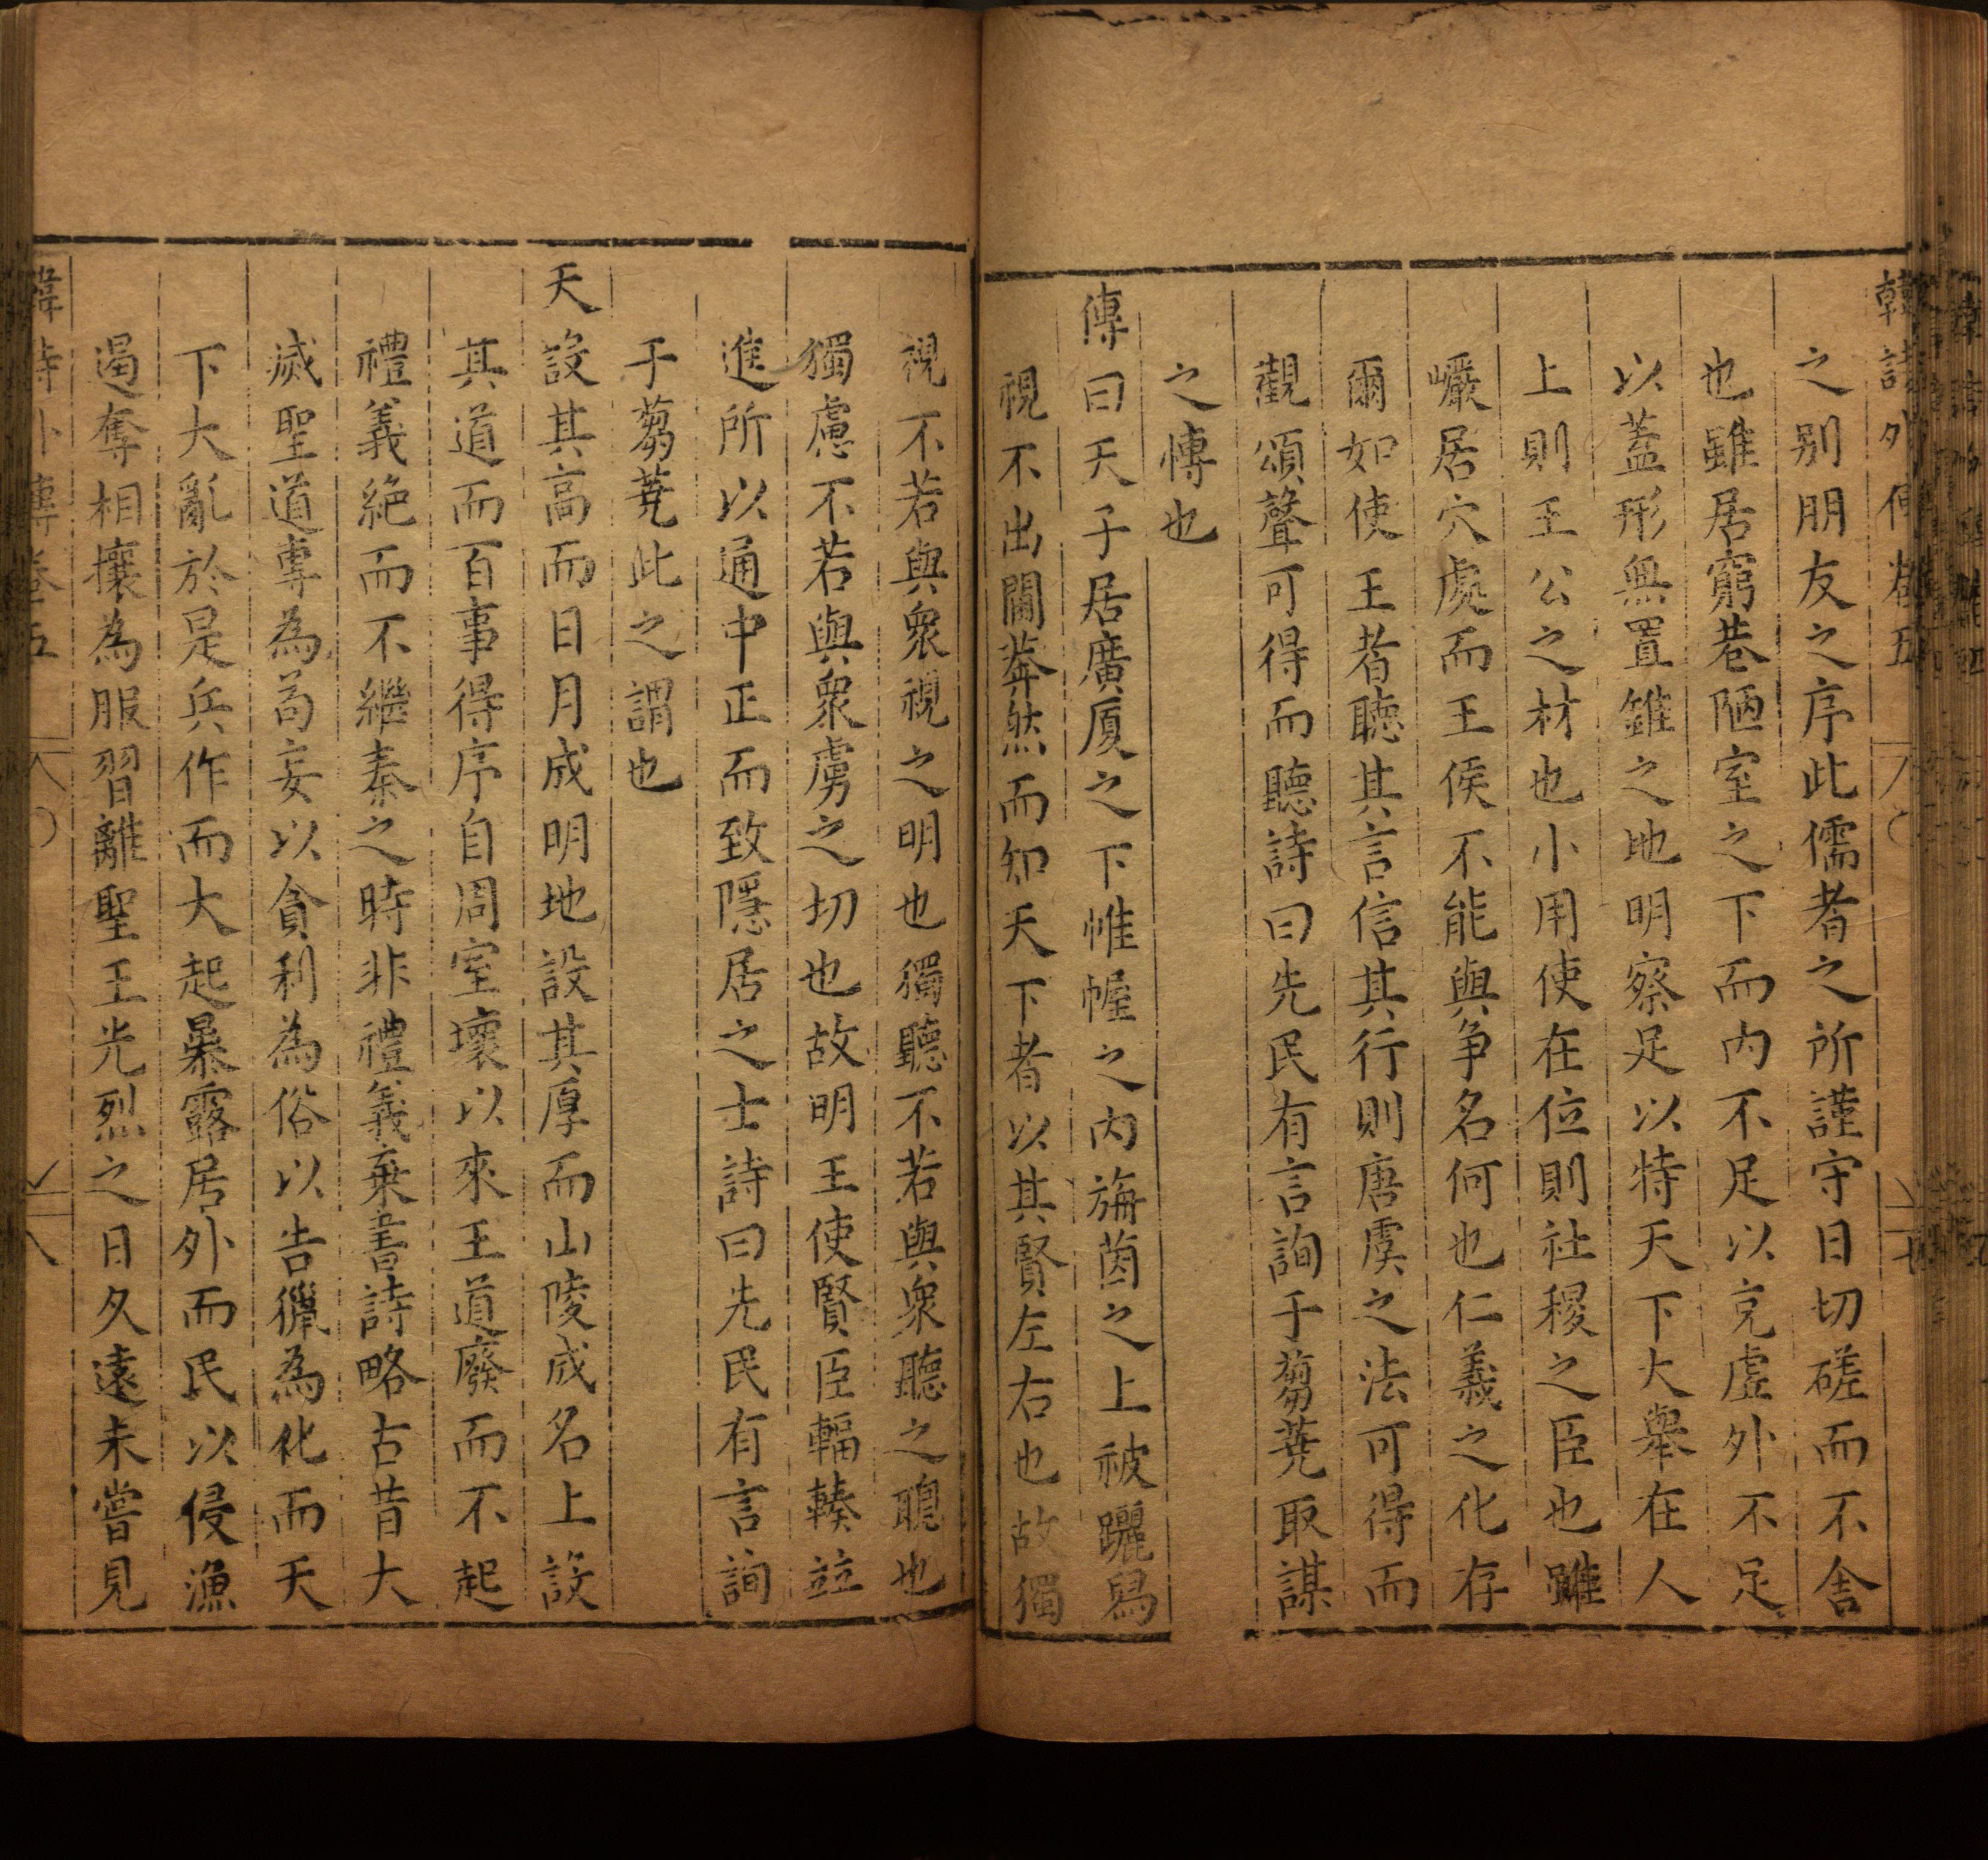 韓詩外傳卷五
之别朋友之序此儒者之所謹守日切磋而不舍
也雖居窮巷陋室之下而内不足以充虛外不足
以蓋形無置錐之地明察足以持天下大舉在人
上則王公之材也小用使在位則社稷之臣也雖
巖居穴處而王侯不能與争名何也仁義之化存
爾如使王者聽其言信其行則唐虞之法可得而
觀頌聲可得而聽詩曰先民有言詢于蒭蕘取謀
之慱也
傳曰天子居廣厦之下帷幄之内旃茵之上被躧舄
視不出閫莽然而知天下者以其賢左右也故獨
視不若與衆視之明也獨聽不若與衆聽之聰也
獨慮不若與衆慮之切也故明王使賢臣輻輳竝
進所以通中正而致隱居之士詩曰先民有言詢
于蒭蕘此之謂也
天設其高而日月成明地設其厚而山陵成名上設
其道而百事得序自周室壞以來王道廢而不起
禮義絶而不繼秦之時非禮義棄書詩略古昔大
滅聖道專為苟妄以貪利為俗以告獵為化而天
下大亂於是兵作而大起暴露居外而民以侵漁
遏奪相攘為服習離聖王光烈之日久遠未嘗見
韓詩外傳卷五